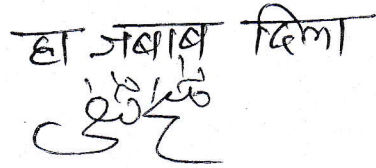 हा जबाब दिला